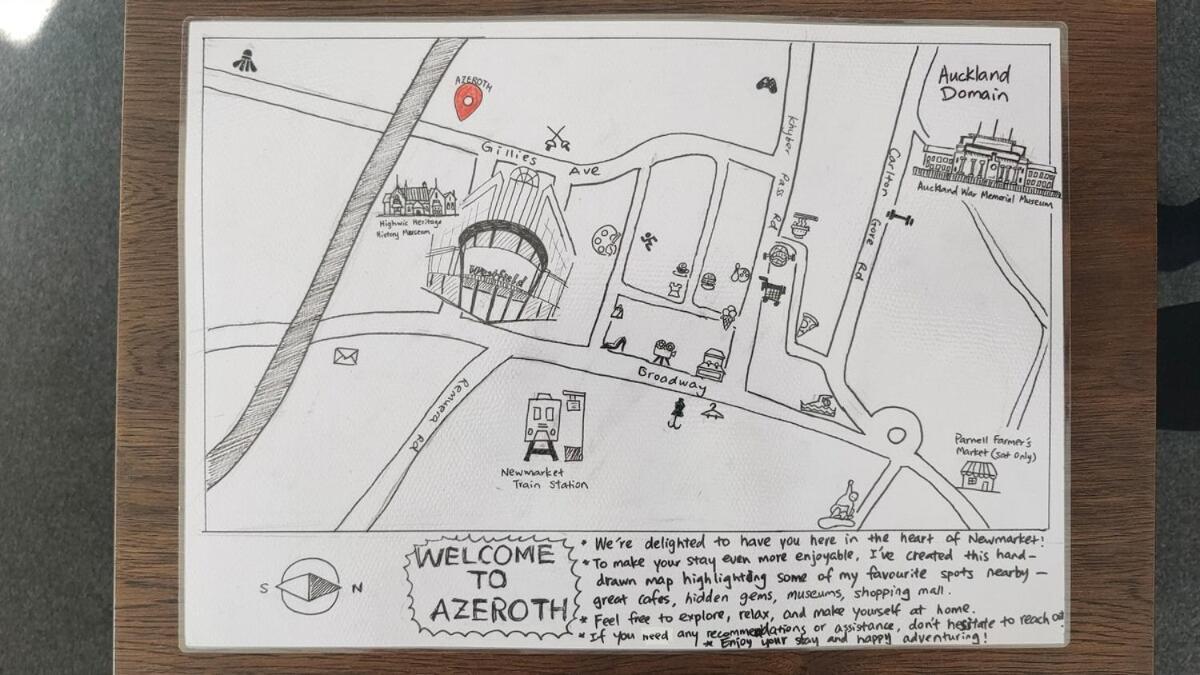 AZEROTH
Auckland
Domain
Khyber Pass Rd
Gillies Ave
Carlton Gore Rd
Auckland War Memorial Museum
Highwic Heritage
History Museum
Westfield
Broadway
Remuera Rd
Newmarket
Train Station
Parnell Farmer's
Market (Sat Only)
S N
WELCOME
TO
AZEROTH
* We're delighted to have you here in the heart of Newmarket!
* To make your stay even more enjoyable, I've created this hand-
drawn map highlighting some of my favourite spots nearby –
great cafes, hidden gems, museums, shopping mall.
* Feel free to explore, relax, and make yourself at home.
* If you need any recommendations or assistance, don't hesitate to reach out
* Enjoy your stay and happy adventuring!